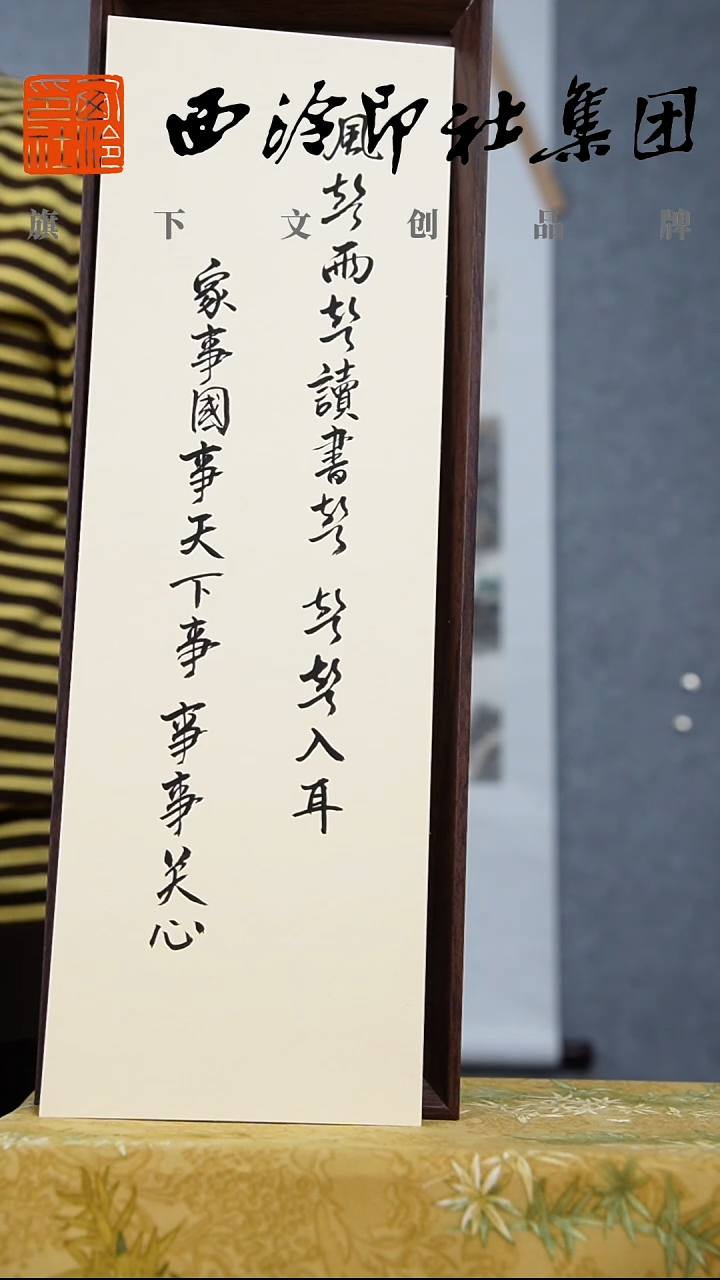 西泠印社
西泠印社集团
旗下文创品牌
風聲雨聲讀書聲 聲聲入耳
家事國事天下事 事事关心